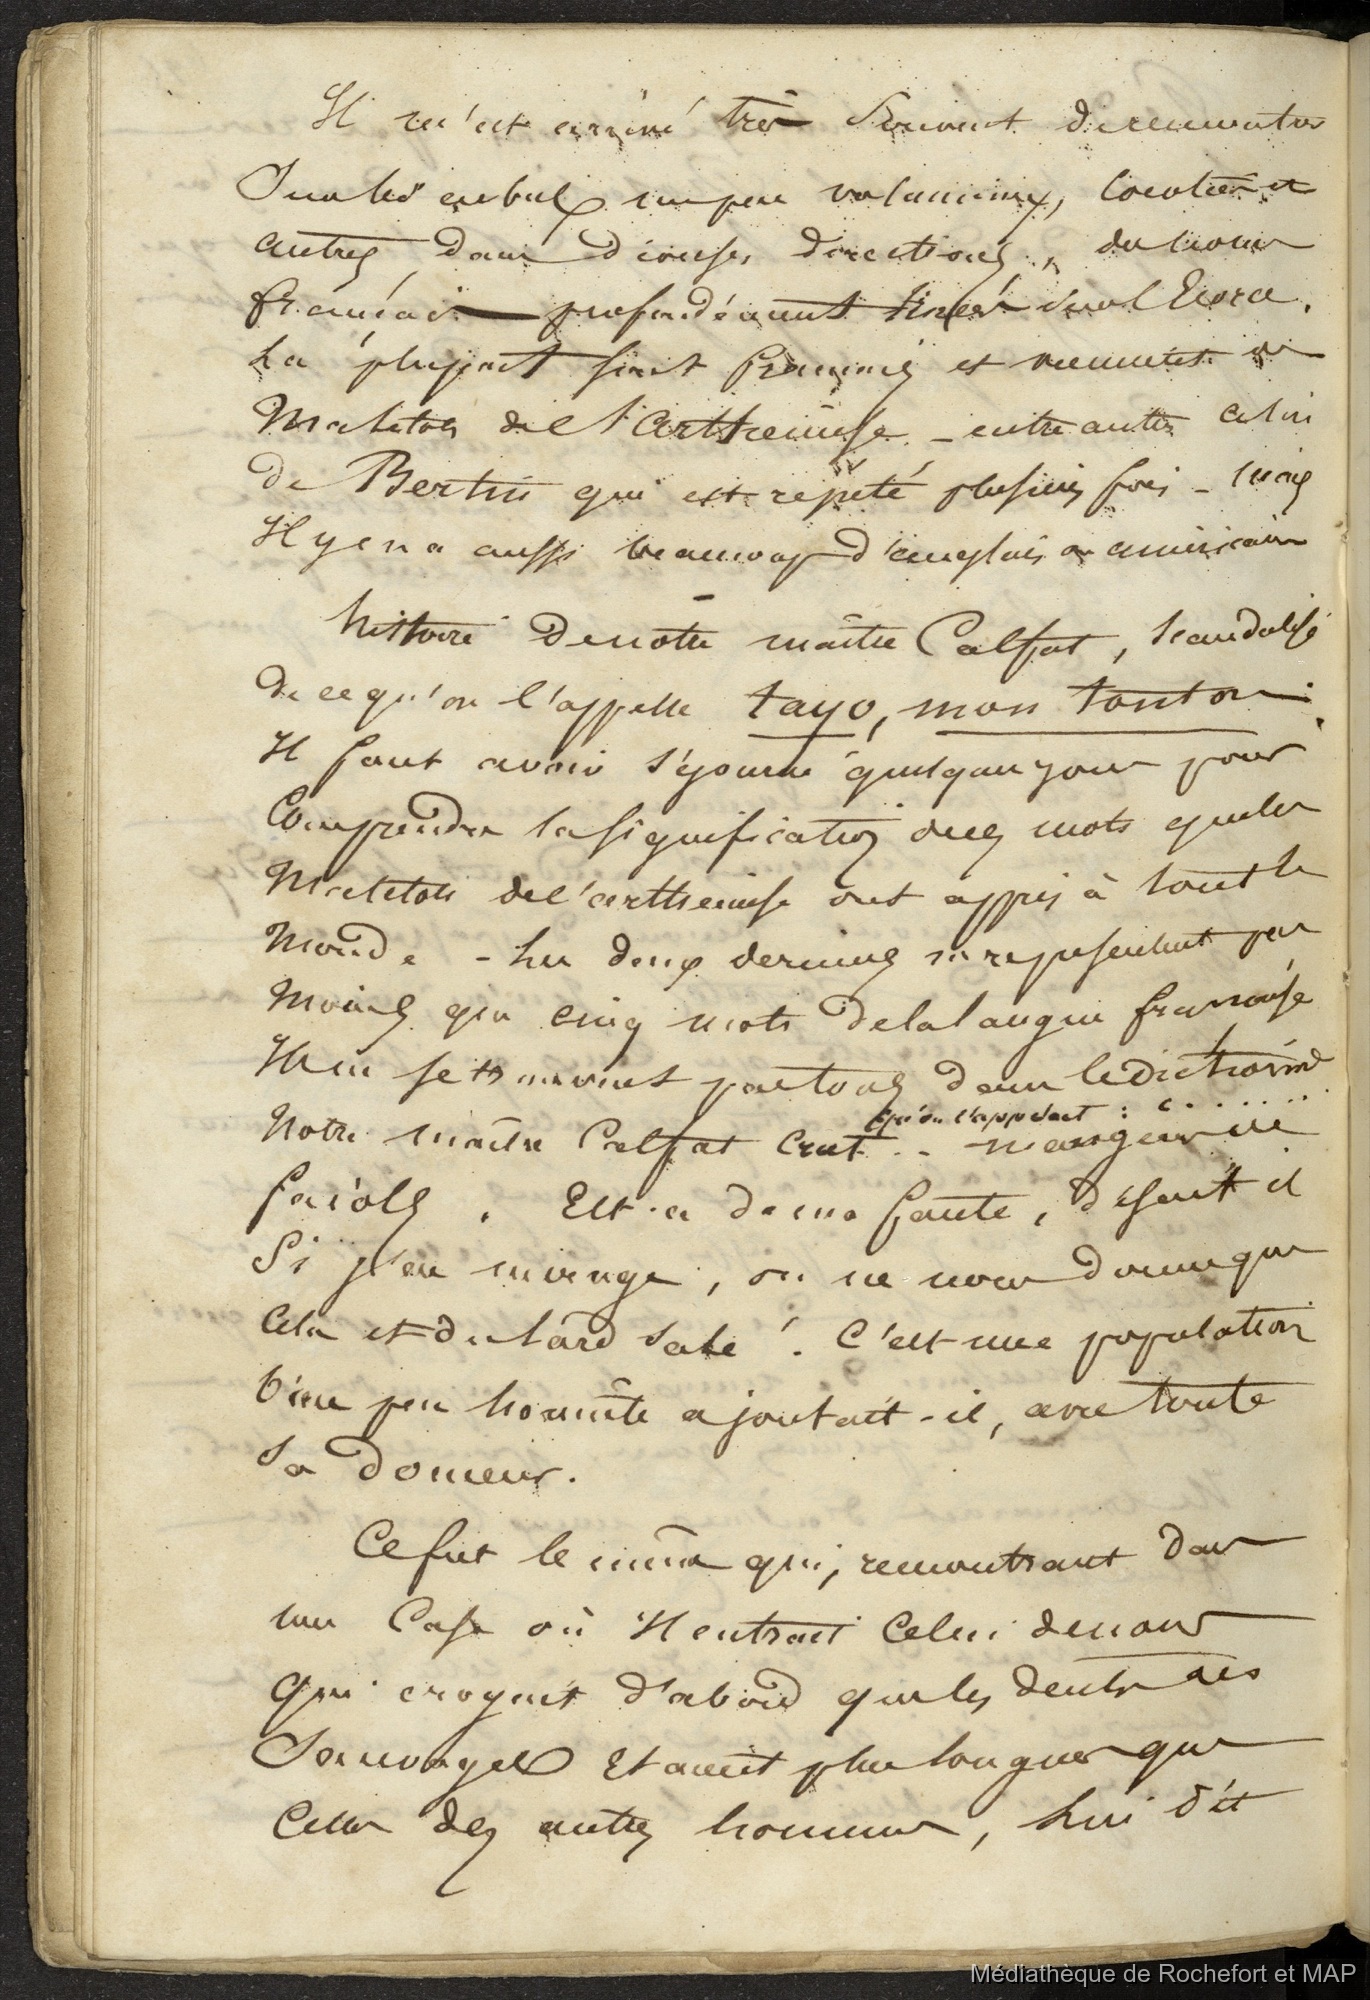 Il m'est arrivé très souvent de rencontrer
sur les arbres un peu volumineux, cocotiers et
autres, dans diverses directions, des noms
français profondément tracés sur l'Ecorce.
La plupart sont français et viennent des
Matelots de l'Arthémise - entre autres celui
de Bertin qui est répété plusieurs fois - mais
Il y en a aussi beaucoup d'anglais ou américains
histoire de notre maître Calfat, scandalisé
de ce qu'on l'appelle tayo, mon tonton.
Il faut avoir séjourné quelques jours pour
Comprendre la signification de ces mots que les
Matelots de l'arthemise ont appris à tout le
Monde - Les deux derniers ne représentent pas
Moins que cinq mots de la langue française
Il ne se trouvent pas tous dans le dictionnre
Notre maître Calfat crut .. mangeur de
qu'on l'appelait : c......
faïols. Est-ce de ma faute, disait il
Si j'en mange, on ne nous donne que
Cela et du lard salé ! C'est une population
bien peu honnête ajoutait-il, avec toute
sa douceur.
Ce fut le même qui, rencontrant dans
une Case où Il entrait Celui de nous
qui croyait d'abord que les dents des
Sauvages Etaient plus longues que
Celles des autres hommes, lui dit
Médiathèque de Rochefort et MAP